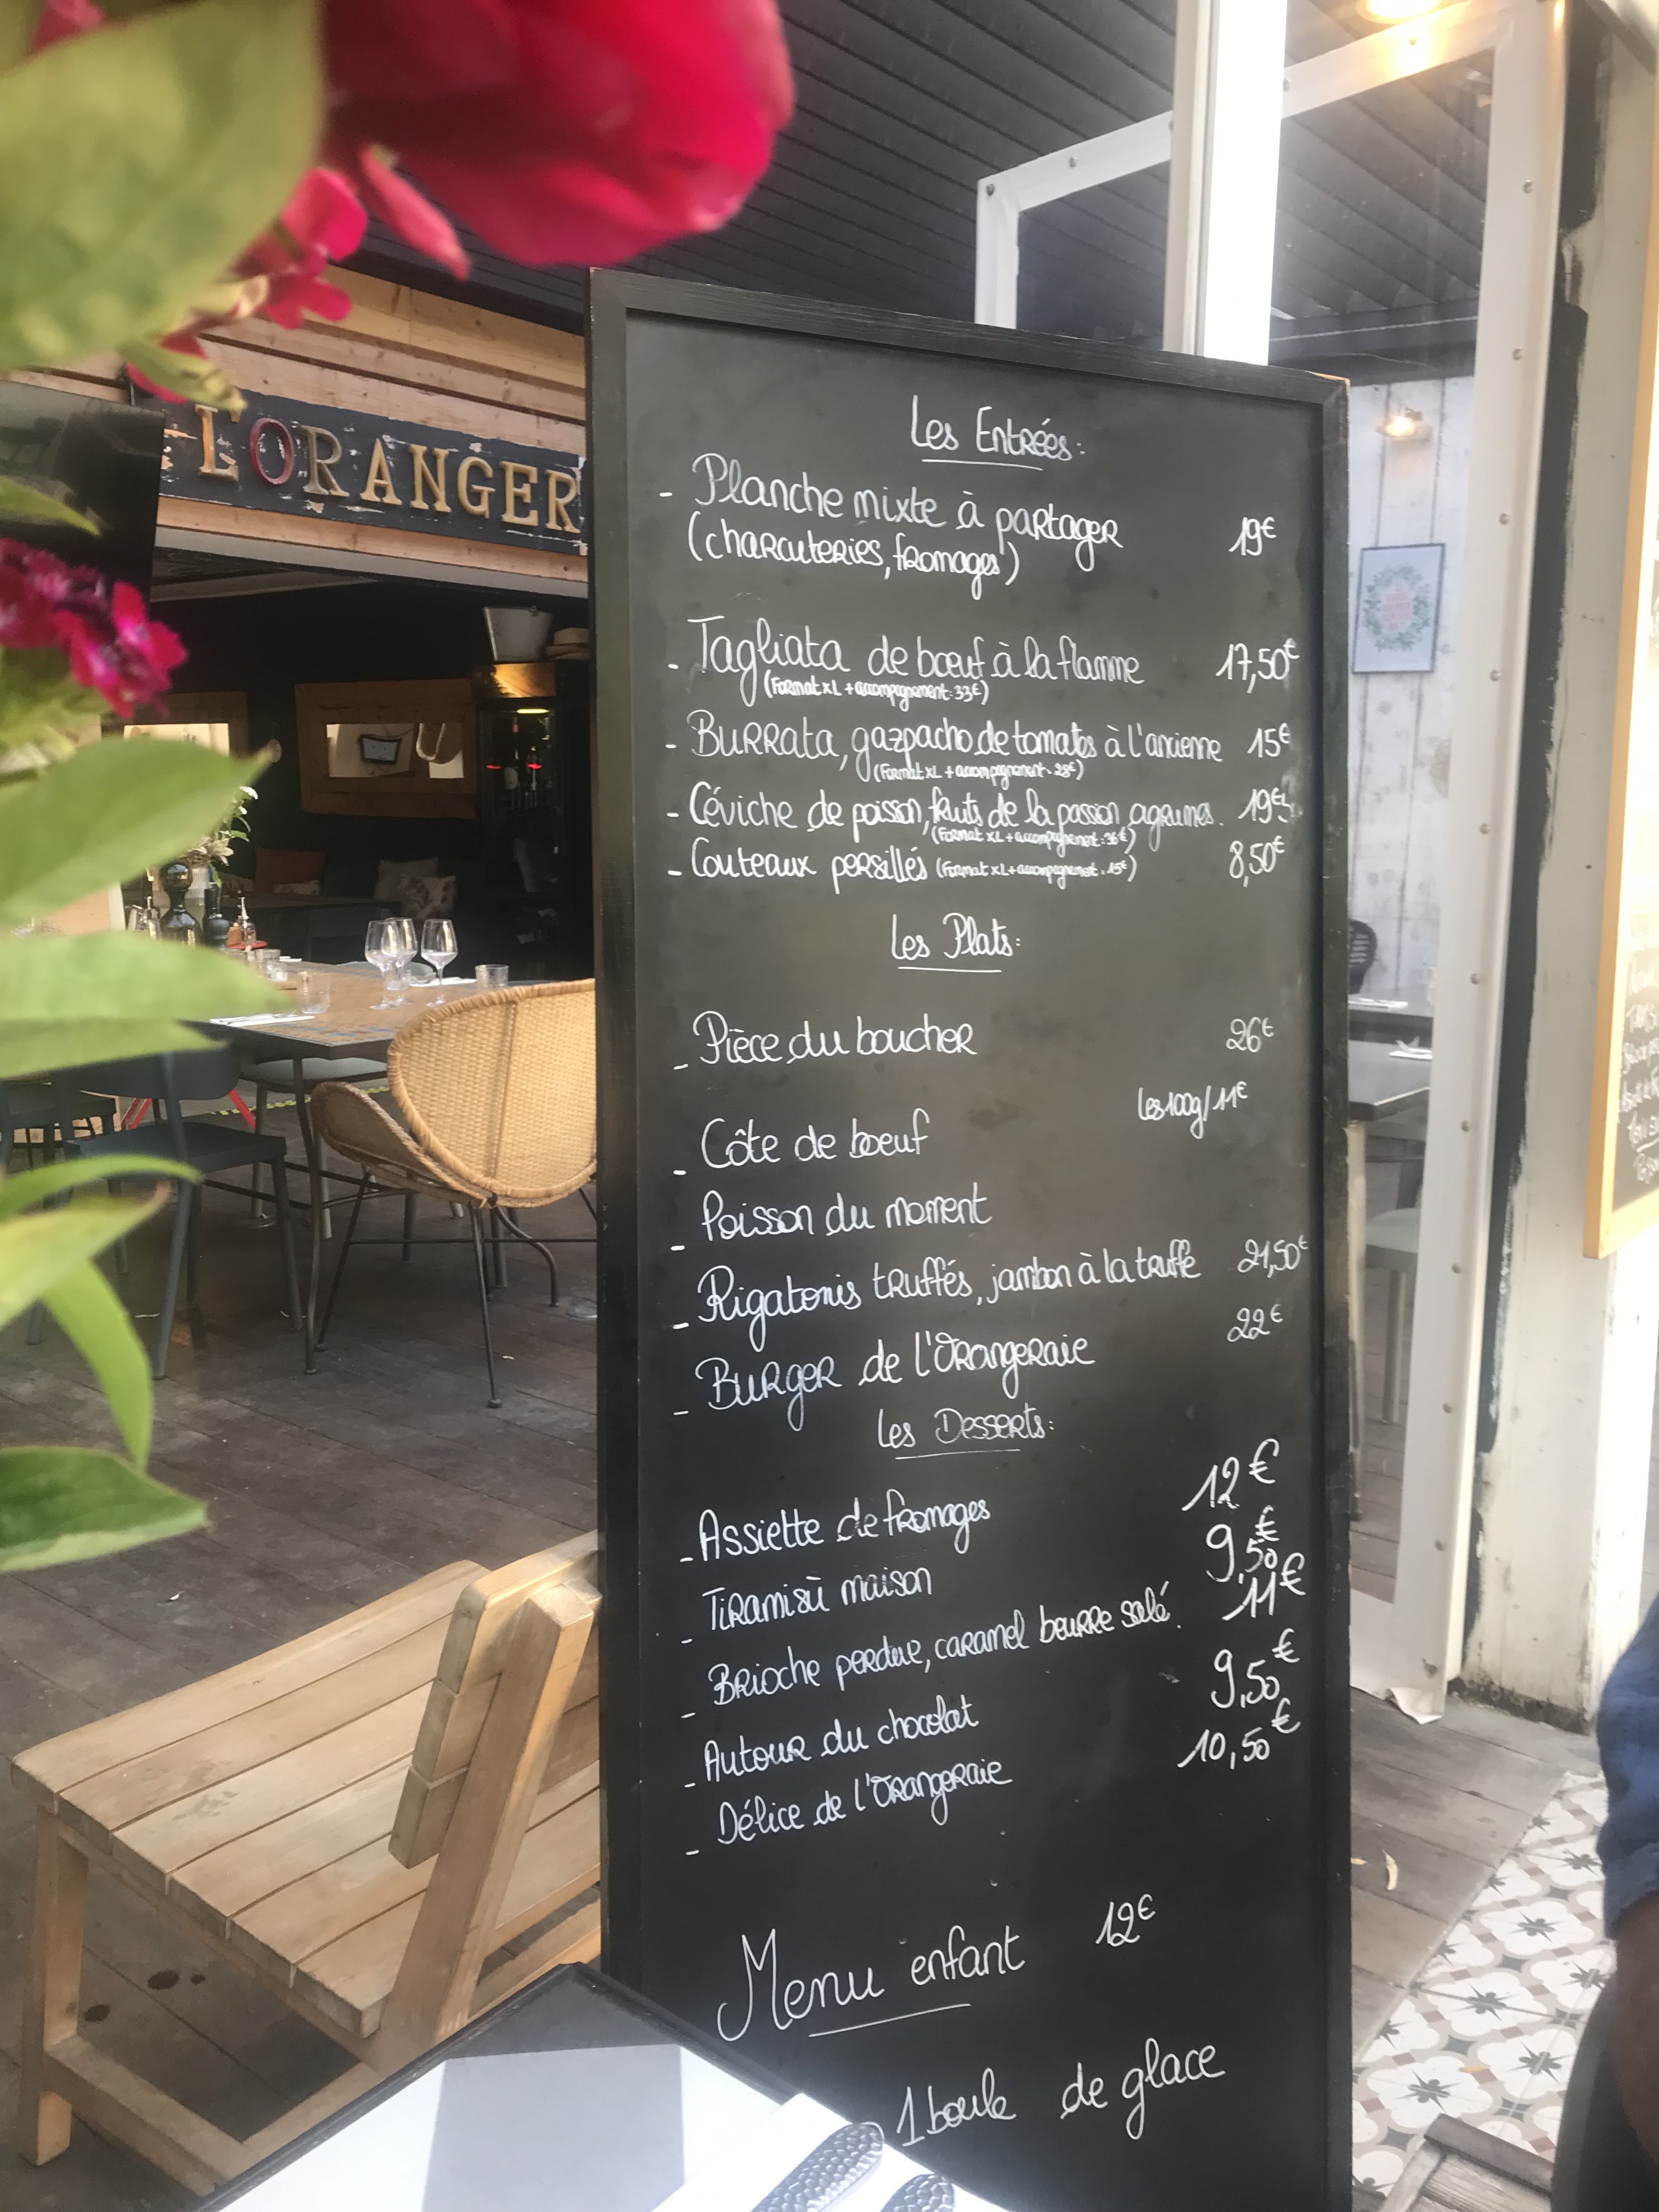 L'ORANGER
Les Entrées:
- Planche mixte à partager 19€
(charcuteries, fromages)
- Tagliata de bœuf à la flamme 17,50€
(Format XL + accompagnement: 33€)
- Burrata, gazpacho de tomates à l'ancienne 15€
(Format XL + accompagnement: 28€)
- Céviche de poisson, fruits de la passion agrumes. 19€
(Format XL + accompagnement: 36€)
- Couteaux persillés (Format XL + accompagnement: 15€) 8,50€
Les Plats:
- Pièce du boucher 26€
- Côte de boeuf Les 100g/11€
- Poisson du moment
- Rigatonis truffés, jambon à la truffe 21,50€
- Burger de l'Orangeraie 22€
Les Desserts:
- Assiette de fromages 12€
- Tiramisù maison 9,50€
- Brioche perdue, caramel beurre salé. 11€
- Autour du chocolat 9,50€
- Délice de l'Orangeraie 10,50€
Menu enfant 12€
1 boule de glace